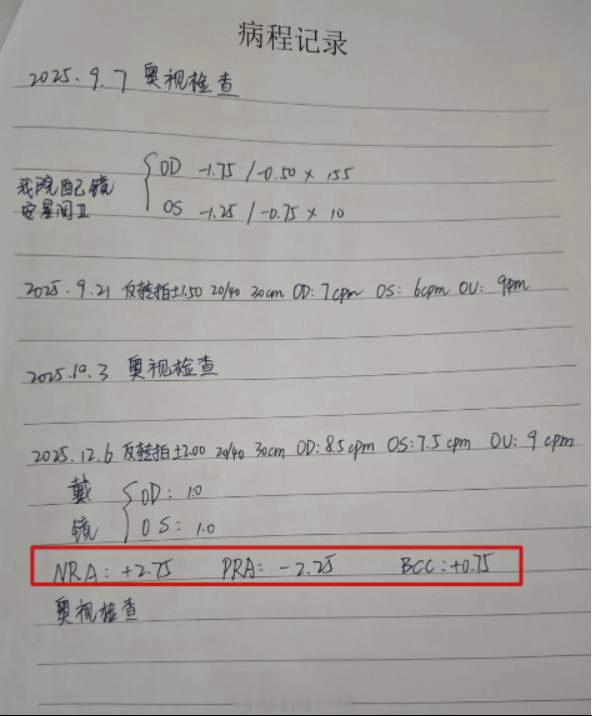 病程记录
2025.9.7 奥视检查
OD -1.75 / -0.50 × 155
我院配镜
安星阅Ⅱ
OS -1.25 / -0.75 × 10
2025.9.21 反转拍±1.50 20/40 30cm OD: 7cpm OS: 6cpm OU: 9pm
2025.10.3 奥视检查
2025.12.6 反转拍±2.00 20/40 30cm OD: 8.5cpm OS: 7.5cpm OU: 9 cpm
戴镜
OD: 1.0
OS: 1.0
NRA: +2.75 PRA: -2.25 BCC: +0.75
奥视检查